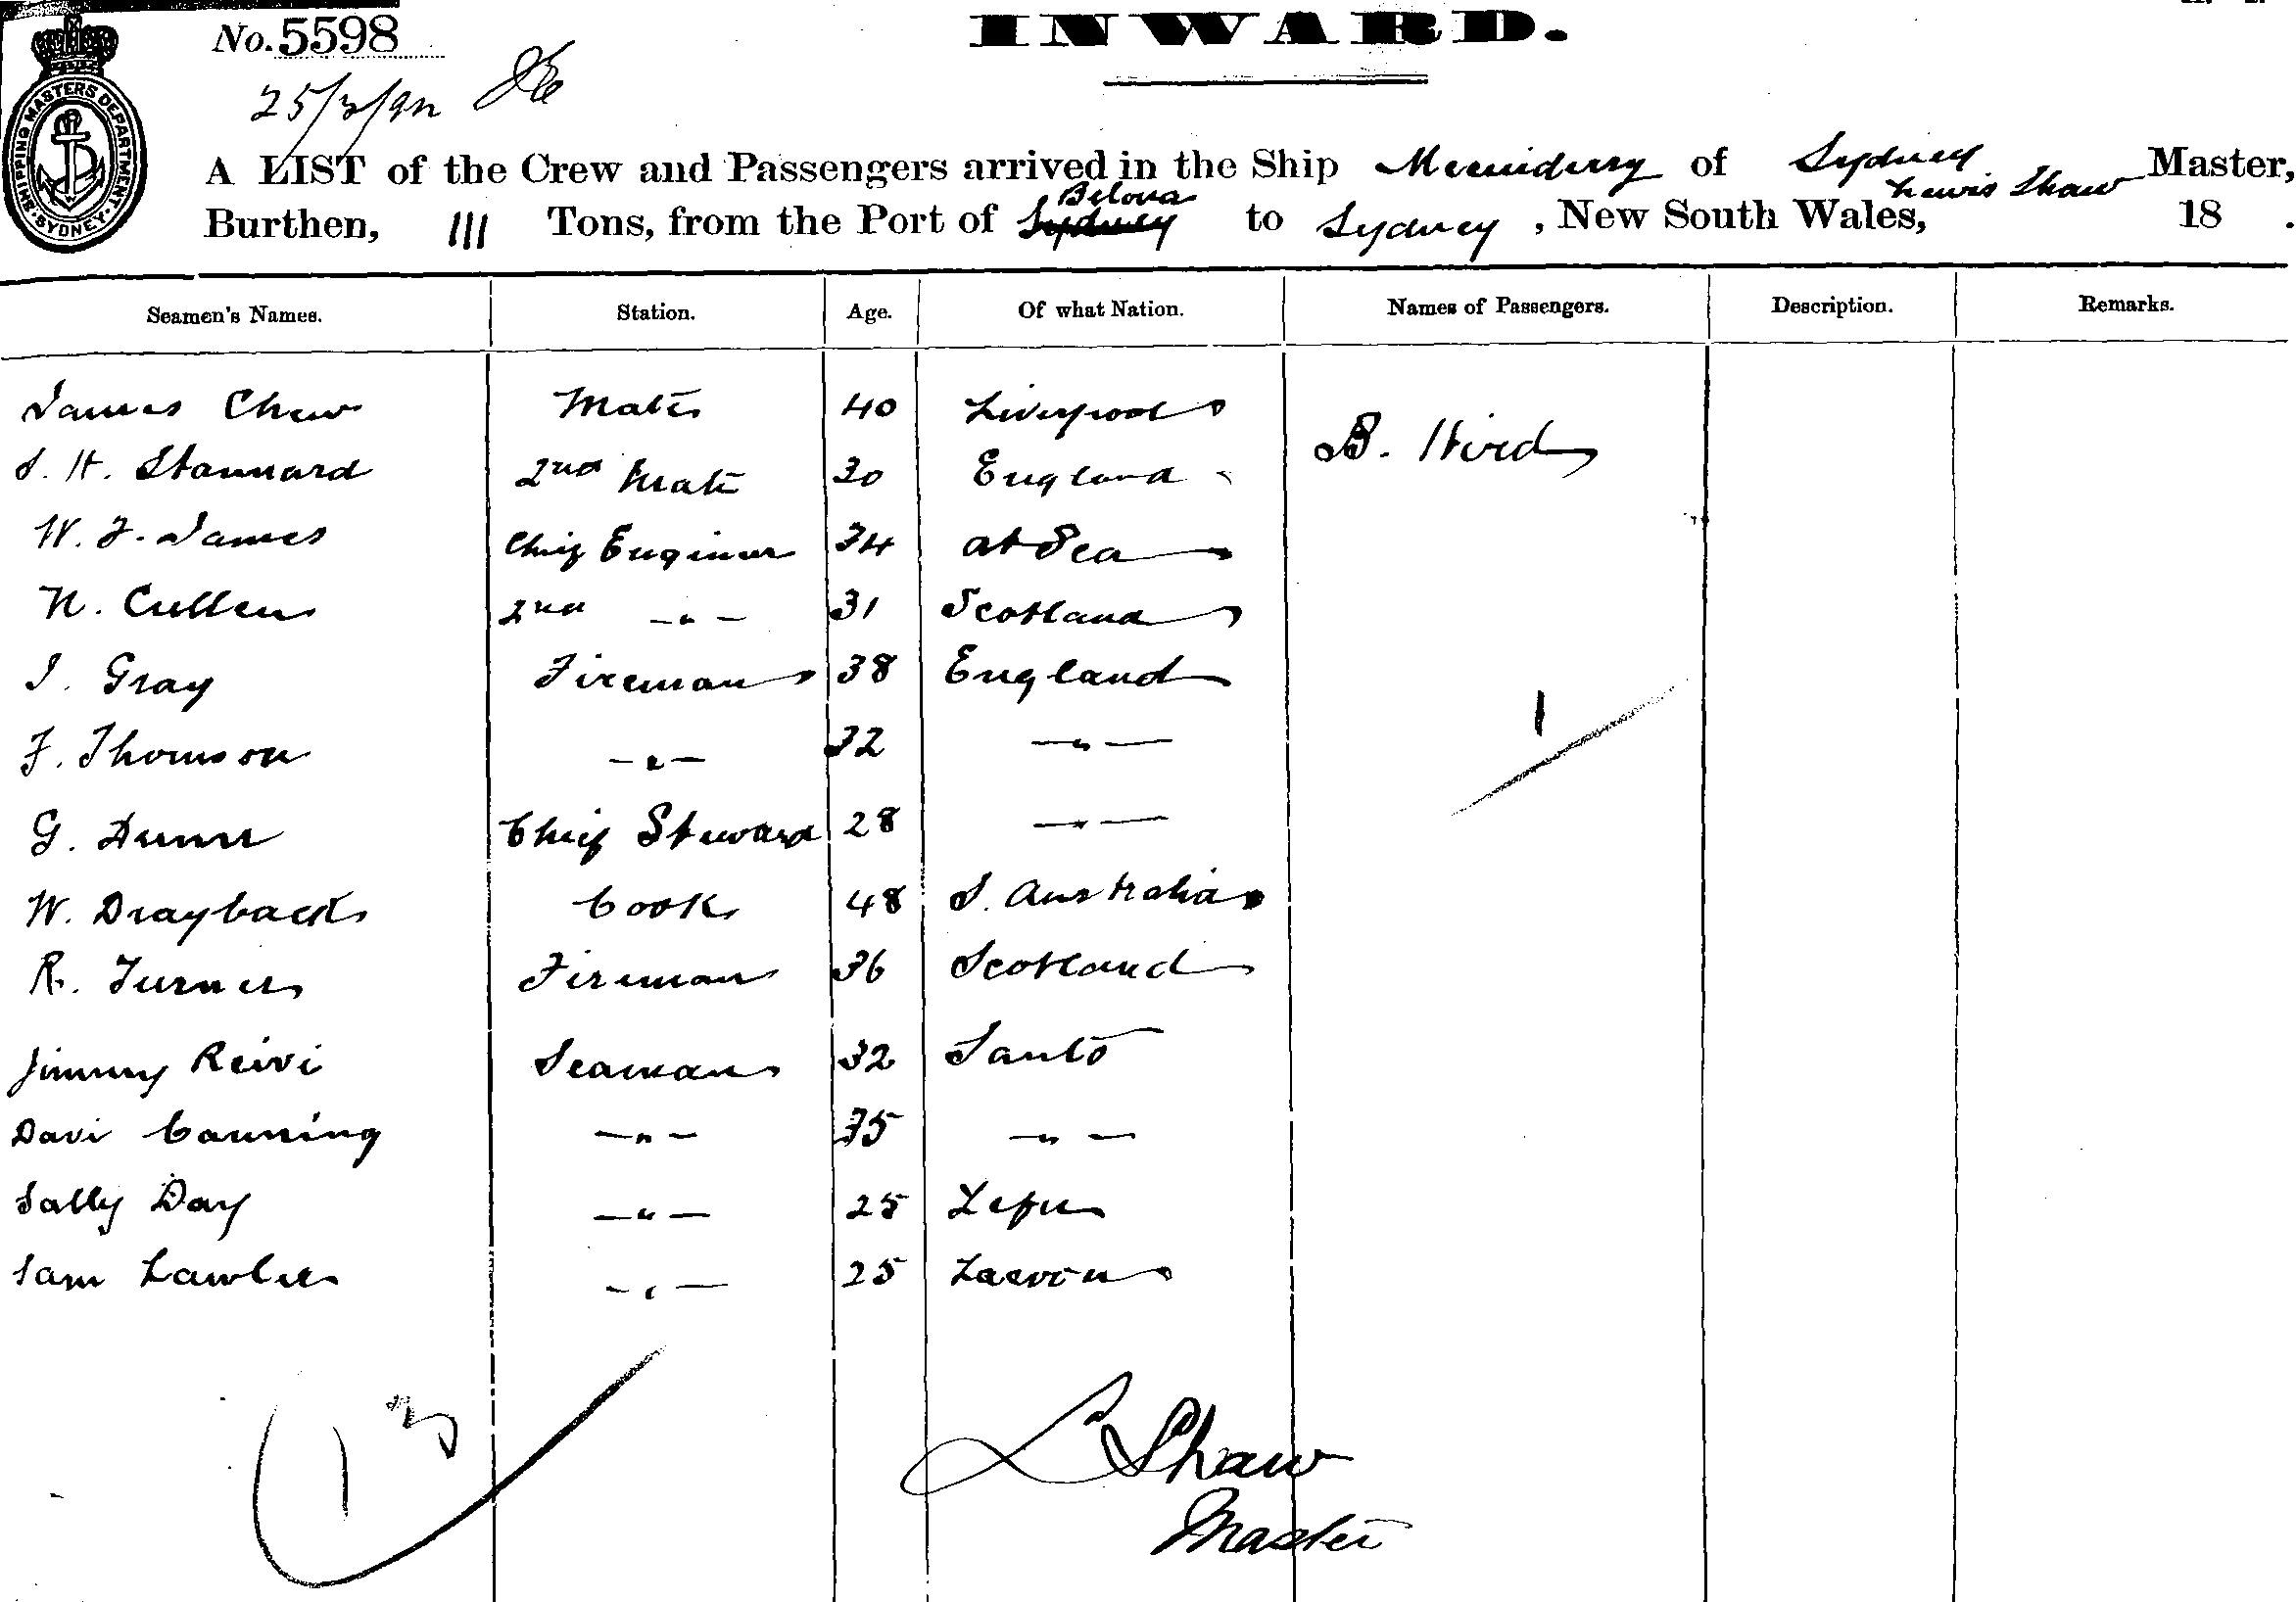 No. 5598
INWARD.
SHIPPING MASTERS DEPARTMENT. SYDNEY.
25/3/92
A LIST of the Crew and Passengers arrived in the Ship of Sydney Lewis Shaw Master,
Burthen, 111 Tons, from the Port of Sydney Belona to Sydney, New South Wales, 18 .
Seamen's Names. Station. Age. Of what Nation. Names of Passengers. Description. Remarks.
James Chew Mate 40 Liverpool B. Hird
S. H. Stannard 2nd Mate 30 England
W. J. James Chief Engineer 34 at Sea
N. Cullen 2nd -"- 31 Scotland
J. Gray Fireman 38 England
F. Thomson -"- 32 -"-
1
G. Dunn Chief Steward 28 -"-
W. Drayback Cook 48 S. Australia
R. Turner Fireman 36 Scotland
Jimmy Reivi Seaman 32 Santo
Davi Canning -"- 35 -"-
Sally Day -"- 25 Lefu
Sam Lawler -"- 25
13
L Shaw
Master